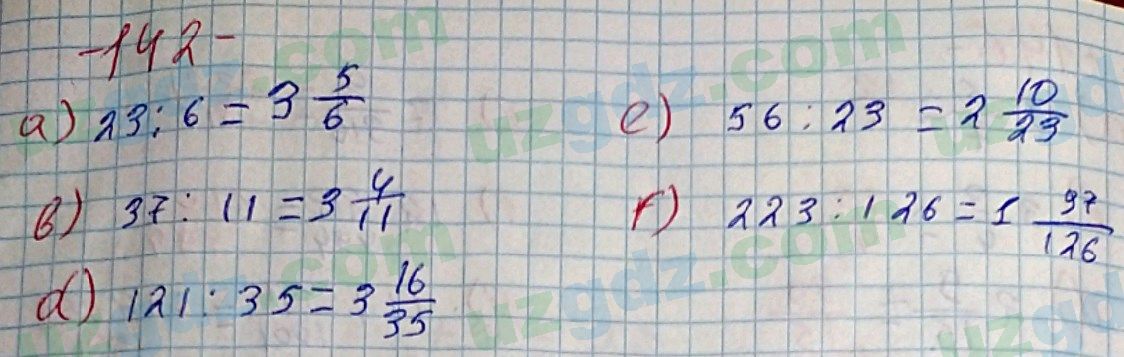 -142-
a) 23 : 6 = 3 5/6
b) 37 : 11 = 3 4/11
d) 121 : 35 = 3 16/35
e) 56 : 23 = 2 10/23
f) 223 : 126 = 1 97/126
uzgdz.com